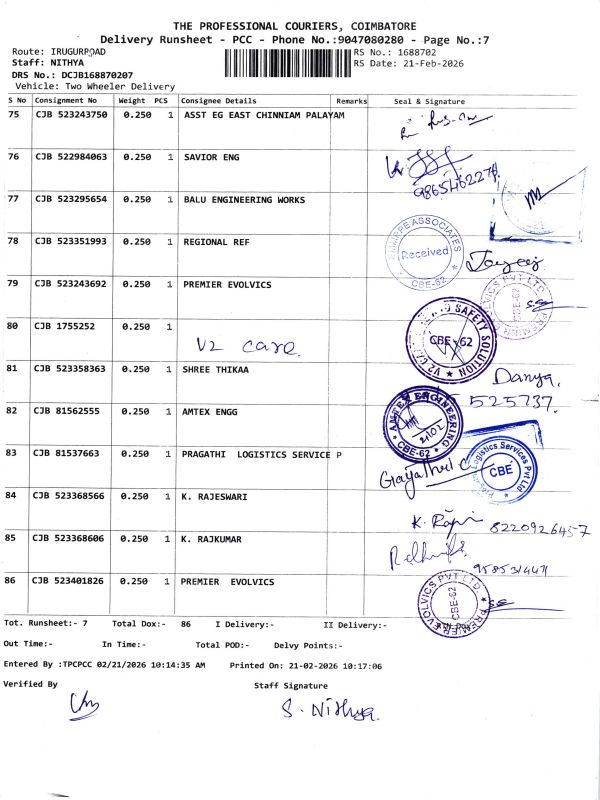 THE PROFESSIONAL COURIERS, COIMBATORE
Delivery Runsheet - PCC - Phone No.:9047080280 - Page No.:7
Route: IRUGURROAD RS No.: 1688702
Staff: NITHYA RS Date: 21-Feb-2026
DRS No.: DCJB168870207
Vehicle: Two Wheeler Delivery
S No Consignment No Weight PCS Consignee Details Remarks Seal & Signature
75 CJB 523243750 0.250 1 ASST EG EAST CHINNIAM PALAYAM
76 CJB 522984063 0.250 1 SAVIOR ENG
9865462276
77 CJB 523295654 0.250 1 BALU ENGINEERING WORKS
78 CJB 523351993 0.250 1 REGIONAL REF
ASSOCIATES Received CBE-62
79 CJB 523243692 0.250 1 PREMIER EVOLVICS
PREMIER EVOLVICS PVT LTD CBE-62
80 CJB 1755252 0.250 1
V2 care.
V2 SAFETY SOLUTION CBE-62
81 CJB 523358363 0.250 1 SHREE THIKAA
Danya.
525737.
82 CJB 81562555 0.250 1 AMTEX ENGG
AMTEX ENGINEERING 21/02 CBE-62
83 CJB 81537663 0.250 1 PRAGATHI LOGISTICS SERVICE P
Gayathri C
Logistics Services Pvt Ltd CBE
84 CJB 523368566 0.250 1 K. RAJESWARI
K. Raji 8220926457
85 CJB 523368606 0.250 1 K. RAJKUMAR
9585314471
86 CJB 523401826 0.250 1 PREMIER EVOLVICS
PREMIER EVOLVICS PVT LTD CBE-62
Tot. Runsheet:- 7 Total Dox:- 86 I Delivery:- II Delivery:-
Out Time:- In Time:- Total POD:- Delvy Points:-
Entered By :TPCPCC 02/21/2026 10:14:35 AM Printed On: 21-02-2026 10:17:06
Verified By Staff Signature
S. Nithya.